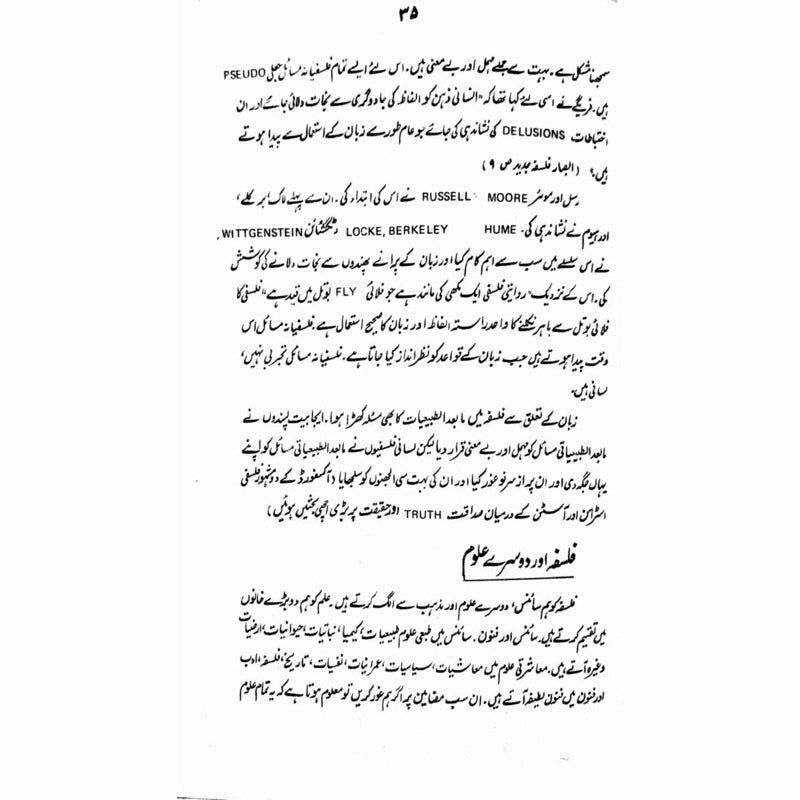 ۳۵
سمجھنا مشکل ہے۔ بہت سے جملے مہمل اور بے معنی ہیں۔ اس لئے ایسے تمام فلسفیانہ مسائل جعلی PSEUDO
ہیں۔ فریگے نے اسی لئے کہا تھا کہ "انسانی ذہن کو الفاظ کی جادوگری سے نجات دلائی جائے اور ان
اختباطات DELUSIONS کی نشاندہی کی جائے جو عام طور سے زبان کے استعمال سے پیدا ہوتے
ہیں" (البصار فلسفہ جدید ص ۹)
رسل اور موئر RUSSELL MOORE نے اس کی ابتداء کی۔ ان سے پہلے لاک، برکلے،
اور ہیوم نے نشاندہی کی۔ LOCKE, BERKELEY HUME وٹگنشٹائن WITTGENSTEIN,
نے اس سلسلے میں سب سے اہم کام کیا اور زبان کے پرانے پھندوں سے نجات دلانے کی کوشش
کی۔ اس کے نزدیک "روایتی فلسفی ایک مکھی کی مانند ہے جو فلائی FLY بوتل میں قید ہے" فلسفی کا
فلائی بوتل سے باہر نکلنے کا واحد راستہ الفاظ اور زبان کا صحیح استعمال ہے۔ فلسفیانہ مسائل اس
وقت پیدا ہوتے ہیں جب زبان کے قواعد کو نظر انداز کیا جاتا ہے۔ فلسفیانہ مسائل تجربی نہیں،
لسانی ہیں۔
زبان کے تعلق سے فلسفہ میں مابعد الطبیعیات کا بھی مسئلہ کھڑا ہوا۔ ایجابیت پسندوں نے
مابعد الطبیعیاتی مسائل کو مہمل اور بے معنی قرار دیا لیکن لسانی فلسفیوں نے مابعد الطبیعیاتی مسائل کو اپنے
یہاں جگہ دی اور ان پر از سر نو غور کیا اور ان کی بہت سی الجھنوں کو سلجھایا (آکسفورڈ کے دو مشہور فلسفی
اسٹراسن اور آسٹن کے درمیان صداقت TRUTH اور حقیقت پر بڑی اچھی بحثیں ہوئیں)
فلسفہ اور دوسرے علوم
فلسفہ کو ہم سائنس، دوسرے علوم اور مذہب سے الگ کرتے ہیں۔ علم کو ہم دو بڑے خانوں
میں تقسیم کرتے ہیں۔ سائنس اور فنون۔ سائنس میں طبعی علوم طبیعیات، کیمیا، نباتیات، حیوانیات، ارضیات
وغیرہ آتے ہیں۔ معاشرتی علوم میں معاشیات، سیاسیات، عمرانیات، نفسیات، تاریخ، فلسفہ، ادب
اور فنون میں فنون لطیفہ آتے ہیں۔ ان سب مضامین پر اگر ہم غور کریں تو معلوم ہوتا ہے کہ یہ تمام علوم